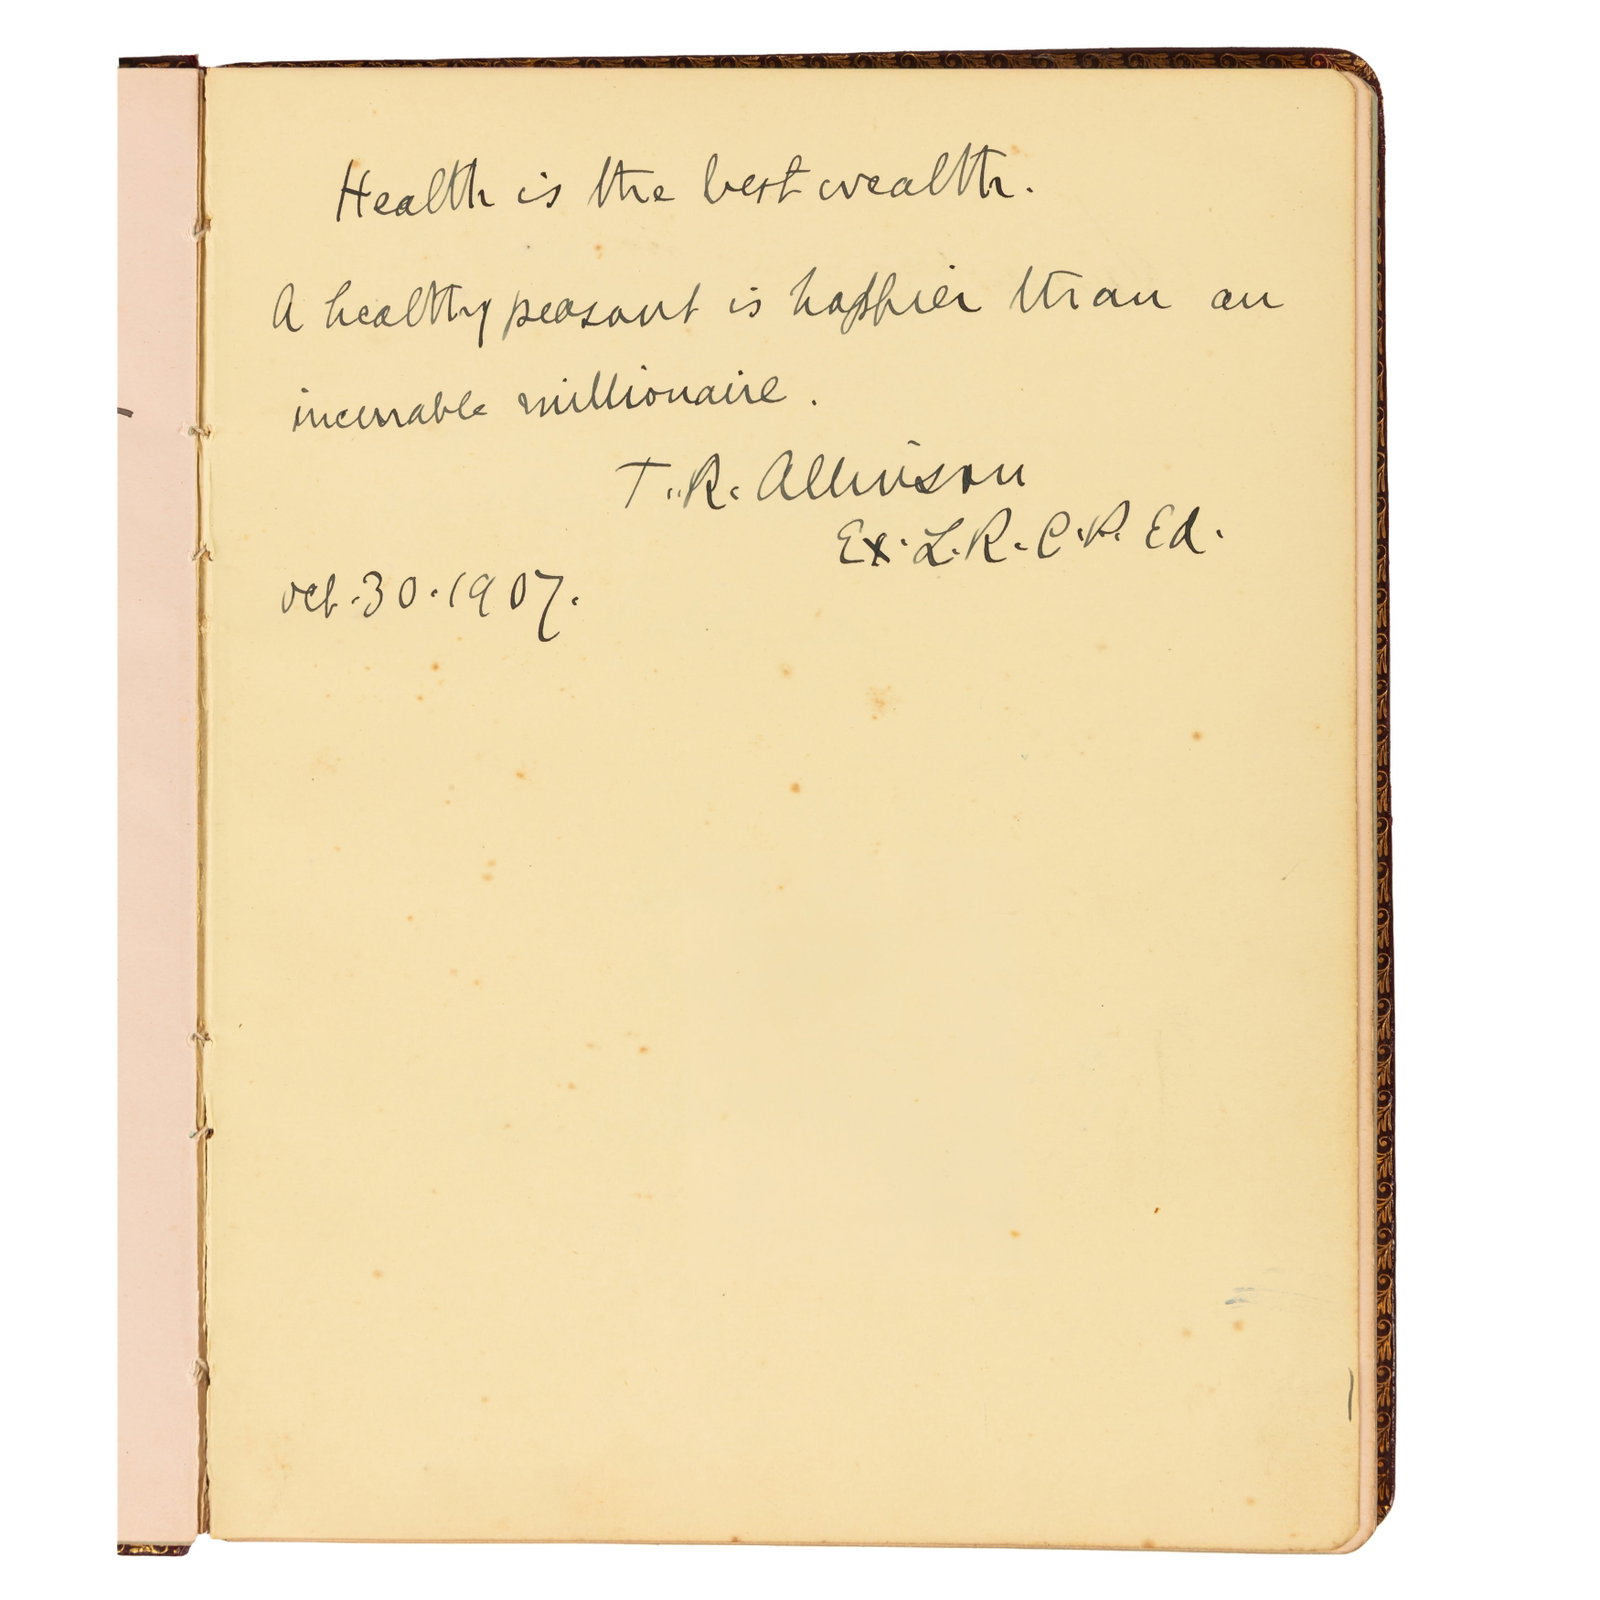 Health is the best wealth.
A healthy peasant is happier than an
incurable millionaire.
T.R. Allinson
Ex. L.R.C.P. Ed.
Oct. 30. 1907.